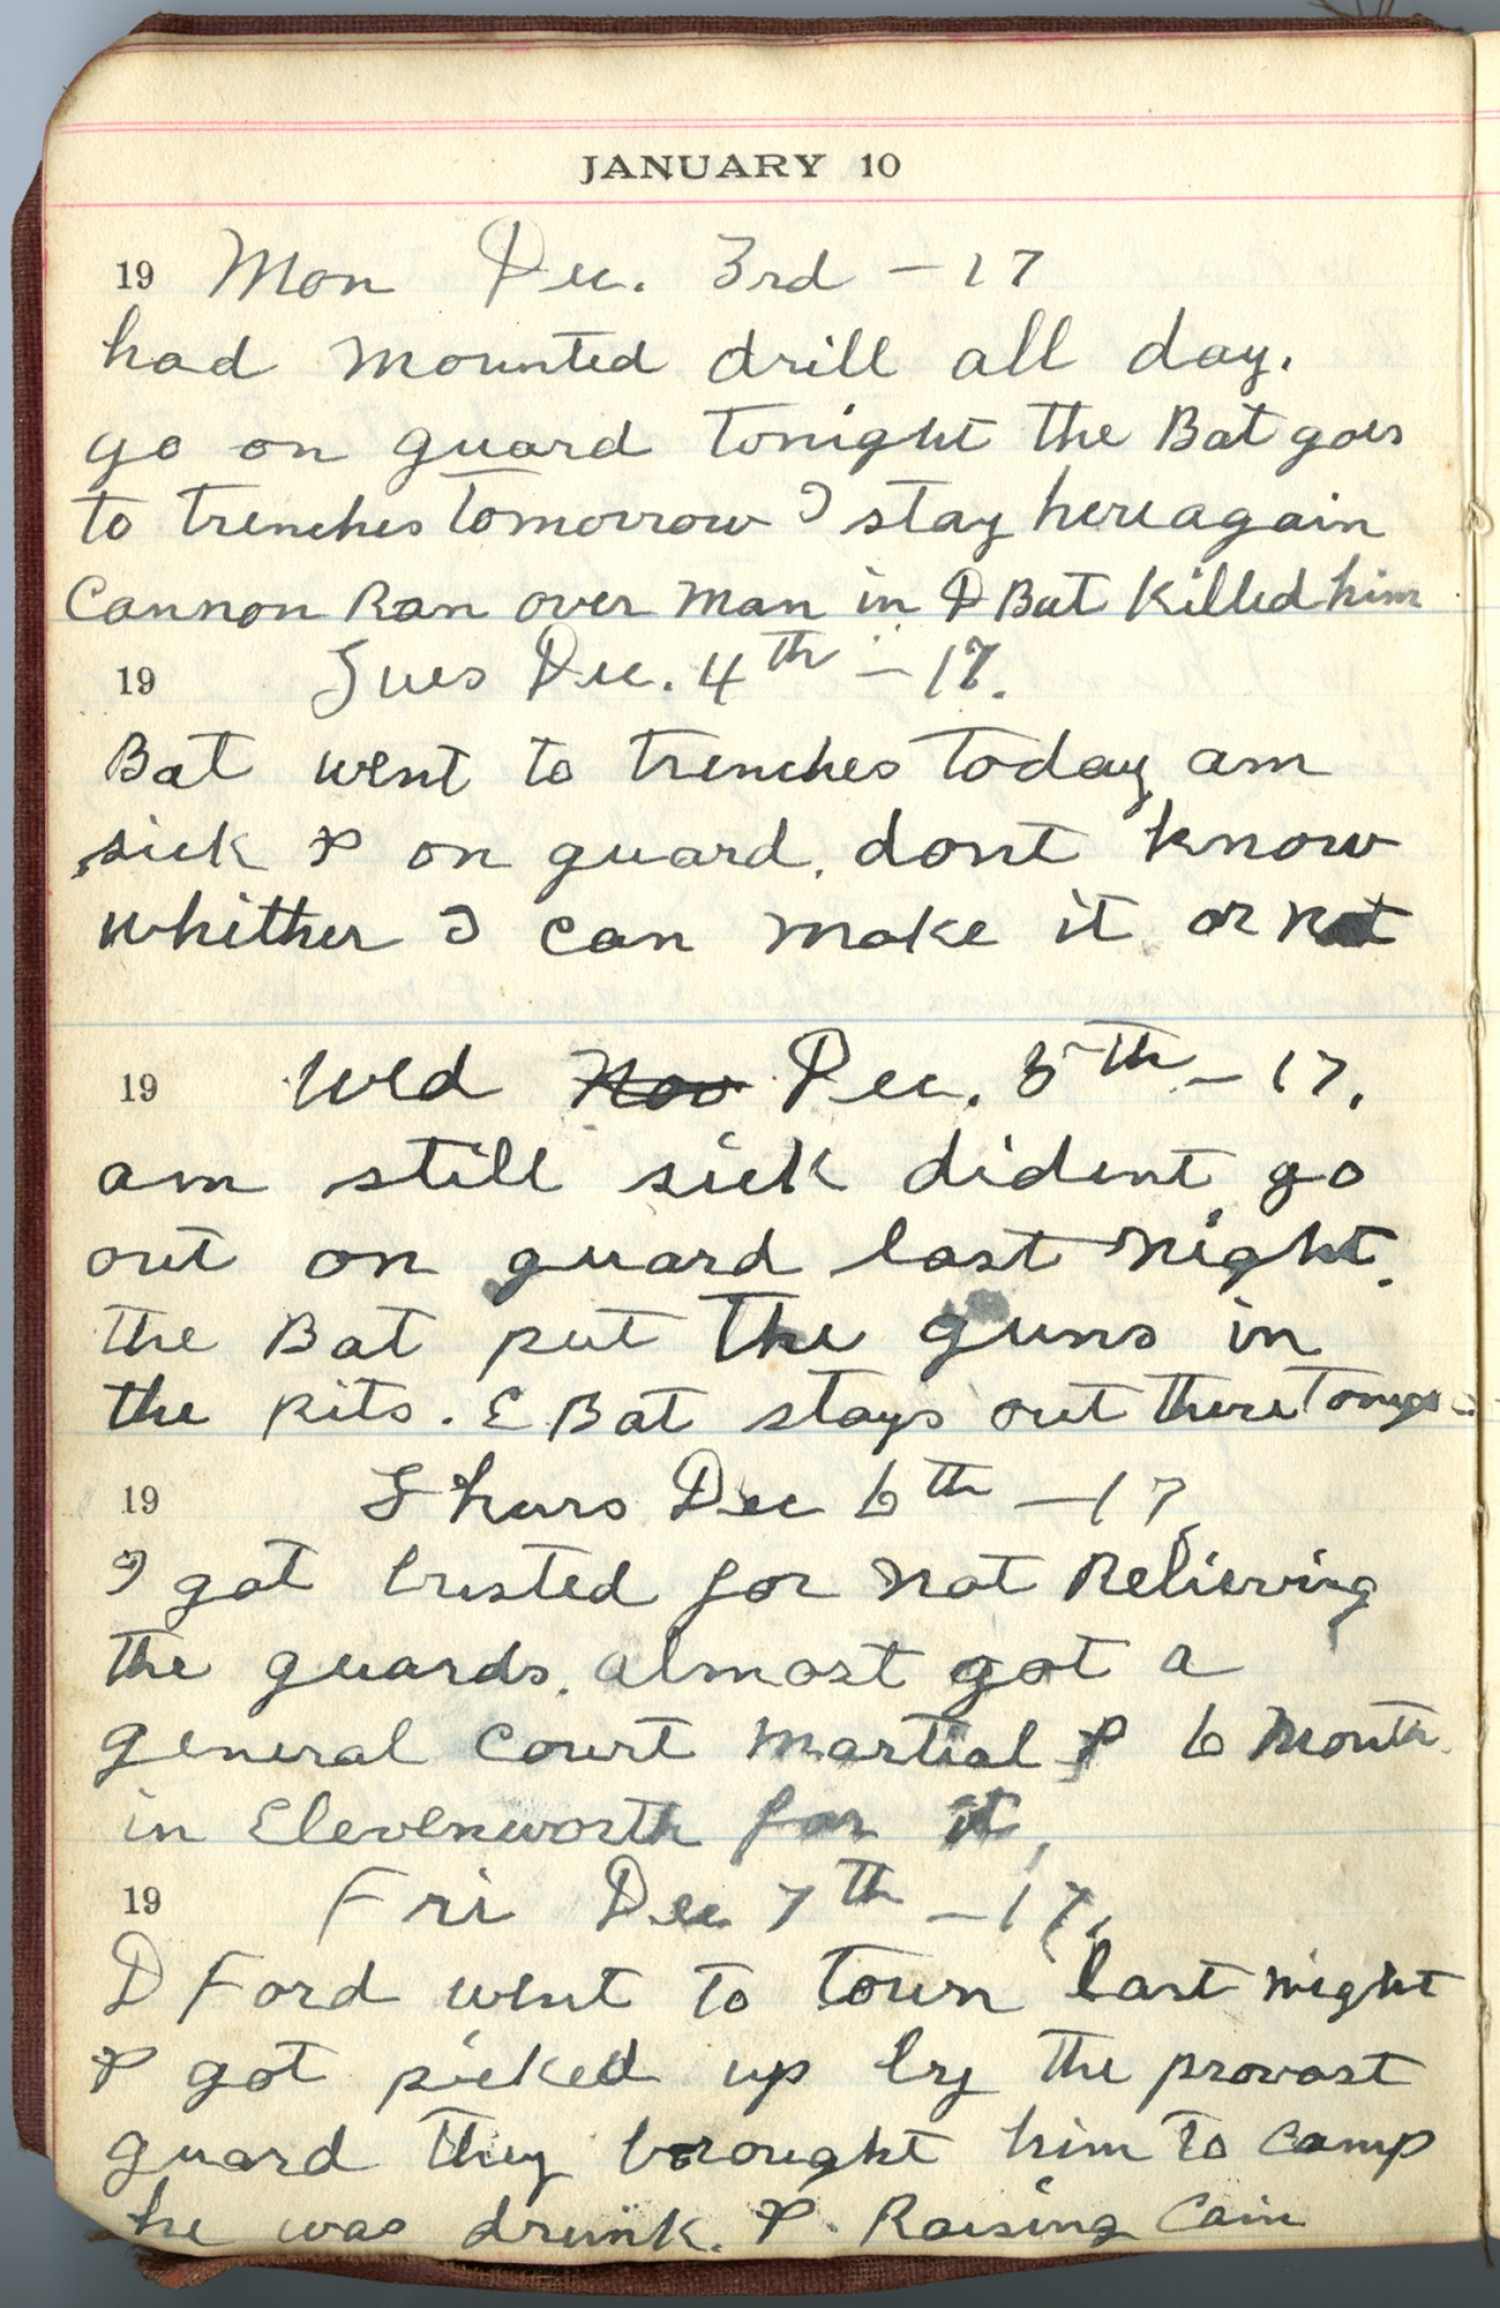 JANUARY 10
19 Mon Dec. 3rd - 17
had mounted drill all day.
go on guard tonight the Bat goes
to trenches tomorrow I stay here again
Cannon Ran over man in D Bat Killed him
19 Tues Dec. 4th - 17.
Bat went to trenches today am
sick & on guard. dont know
whither I can make it or not
19 Wed Nov Dec. 5th - 17.
am still sick dident go
out on guard last night.
the Bat put the guns in
the pits. E Bat stays out there
19 Thurs Dec 6th - 17
I got busted for not Relieving
the guards. almost got a
general court martial & 6 Month
in Elevenworth for it,
19 Fri Dec 7th - 17.
D Ford went to town last night
& got picked up by the provost
guard they brought him to camp
he was drunk. & Raising Cain